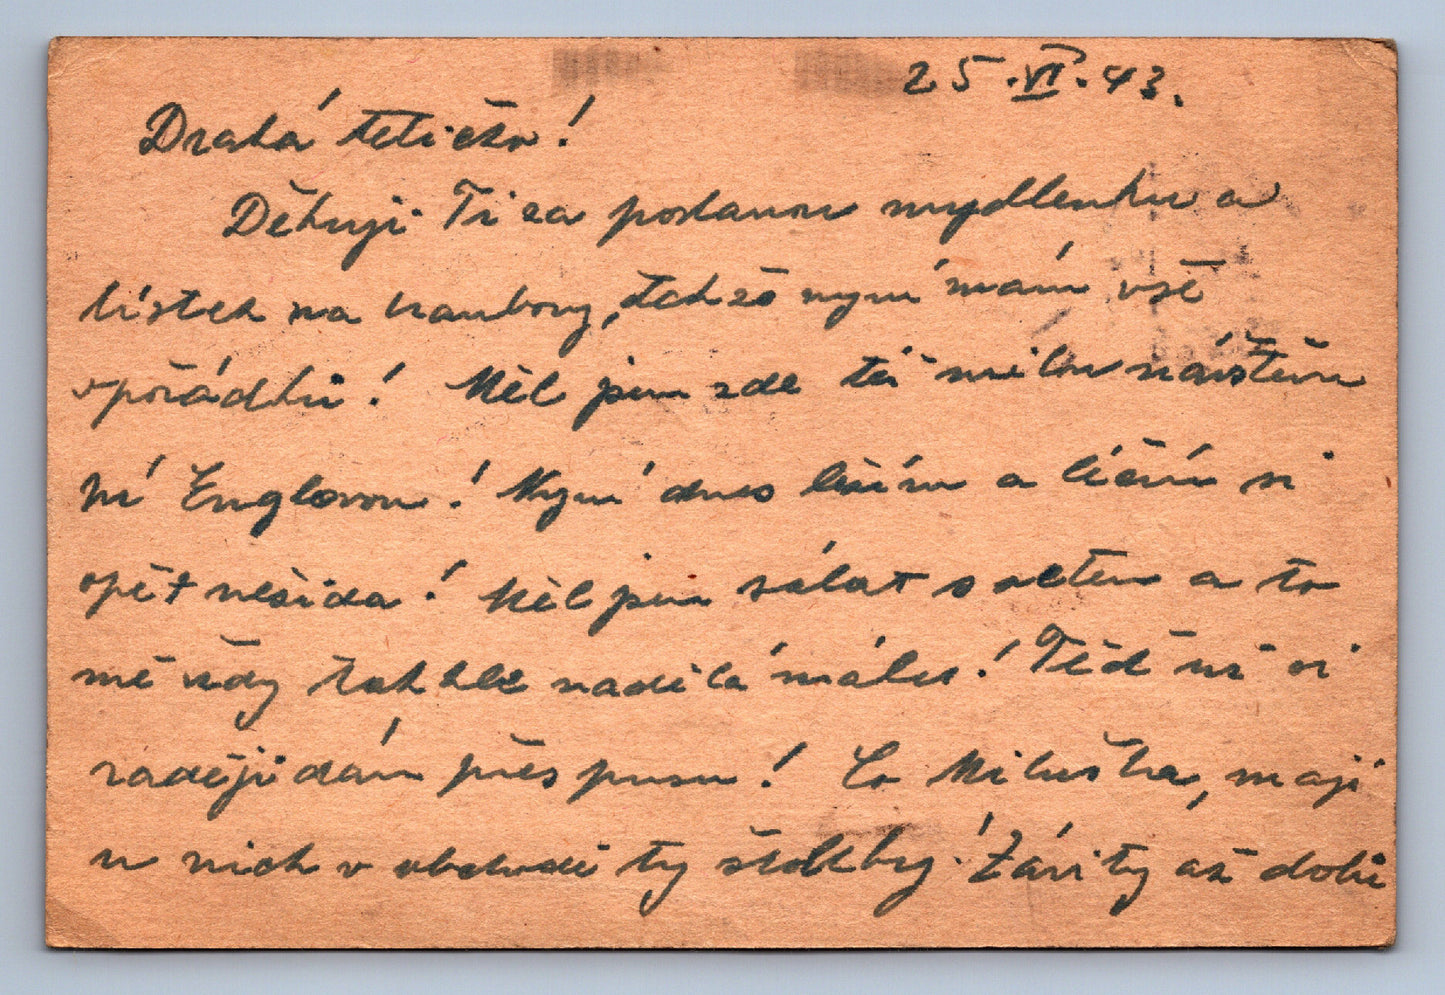 25.VI.43.
Drahá tetičko!
Děkuji Ti za poslanou mydlenku a
lístek na brambory, takže nyní mám vše
v pořádku! Měl jsem zde též milou návštěvu
ní Englovou! Nyní dnes ležím a léčím si
opět nešida! Měl jsem salát s octem a to
mě vždy takhle nadělá málo! Teď už si
raději dám přes pusu! Co Miluška, mají
u nich v obchodě ty štolby! Závity až dolů